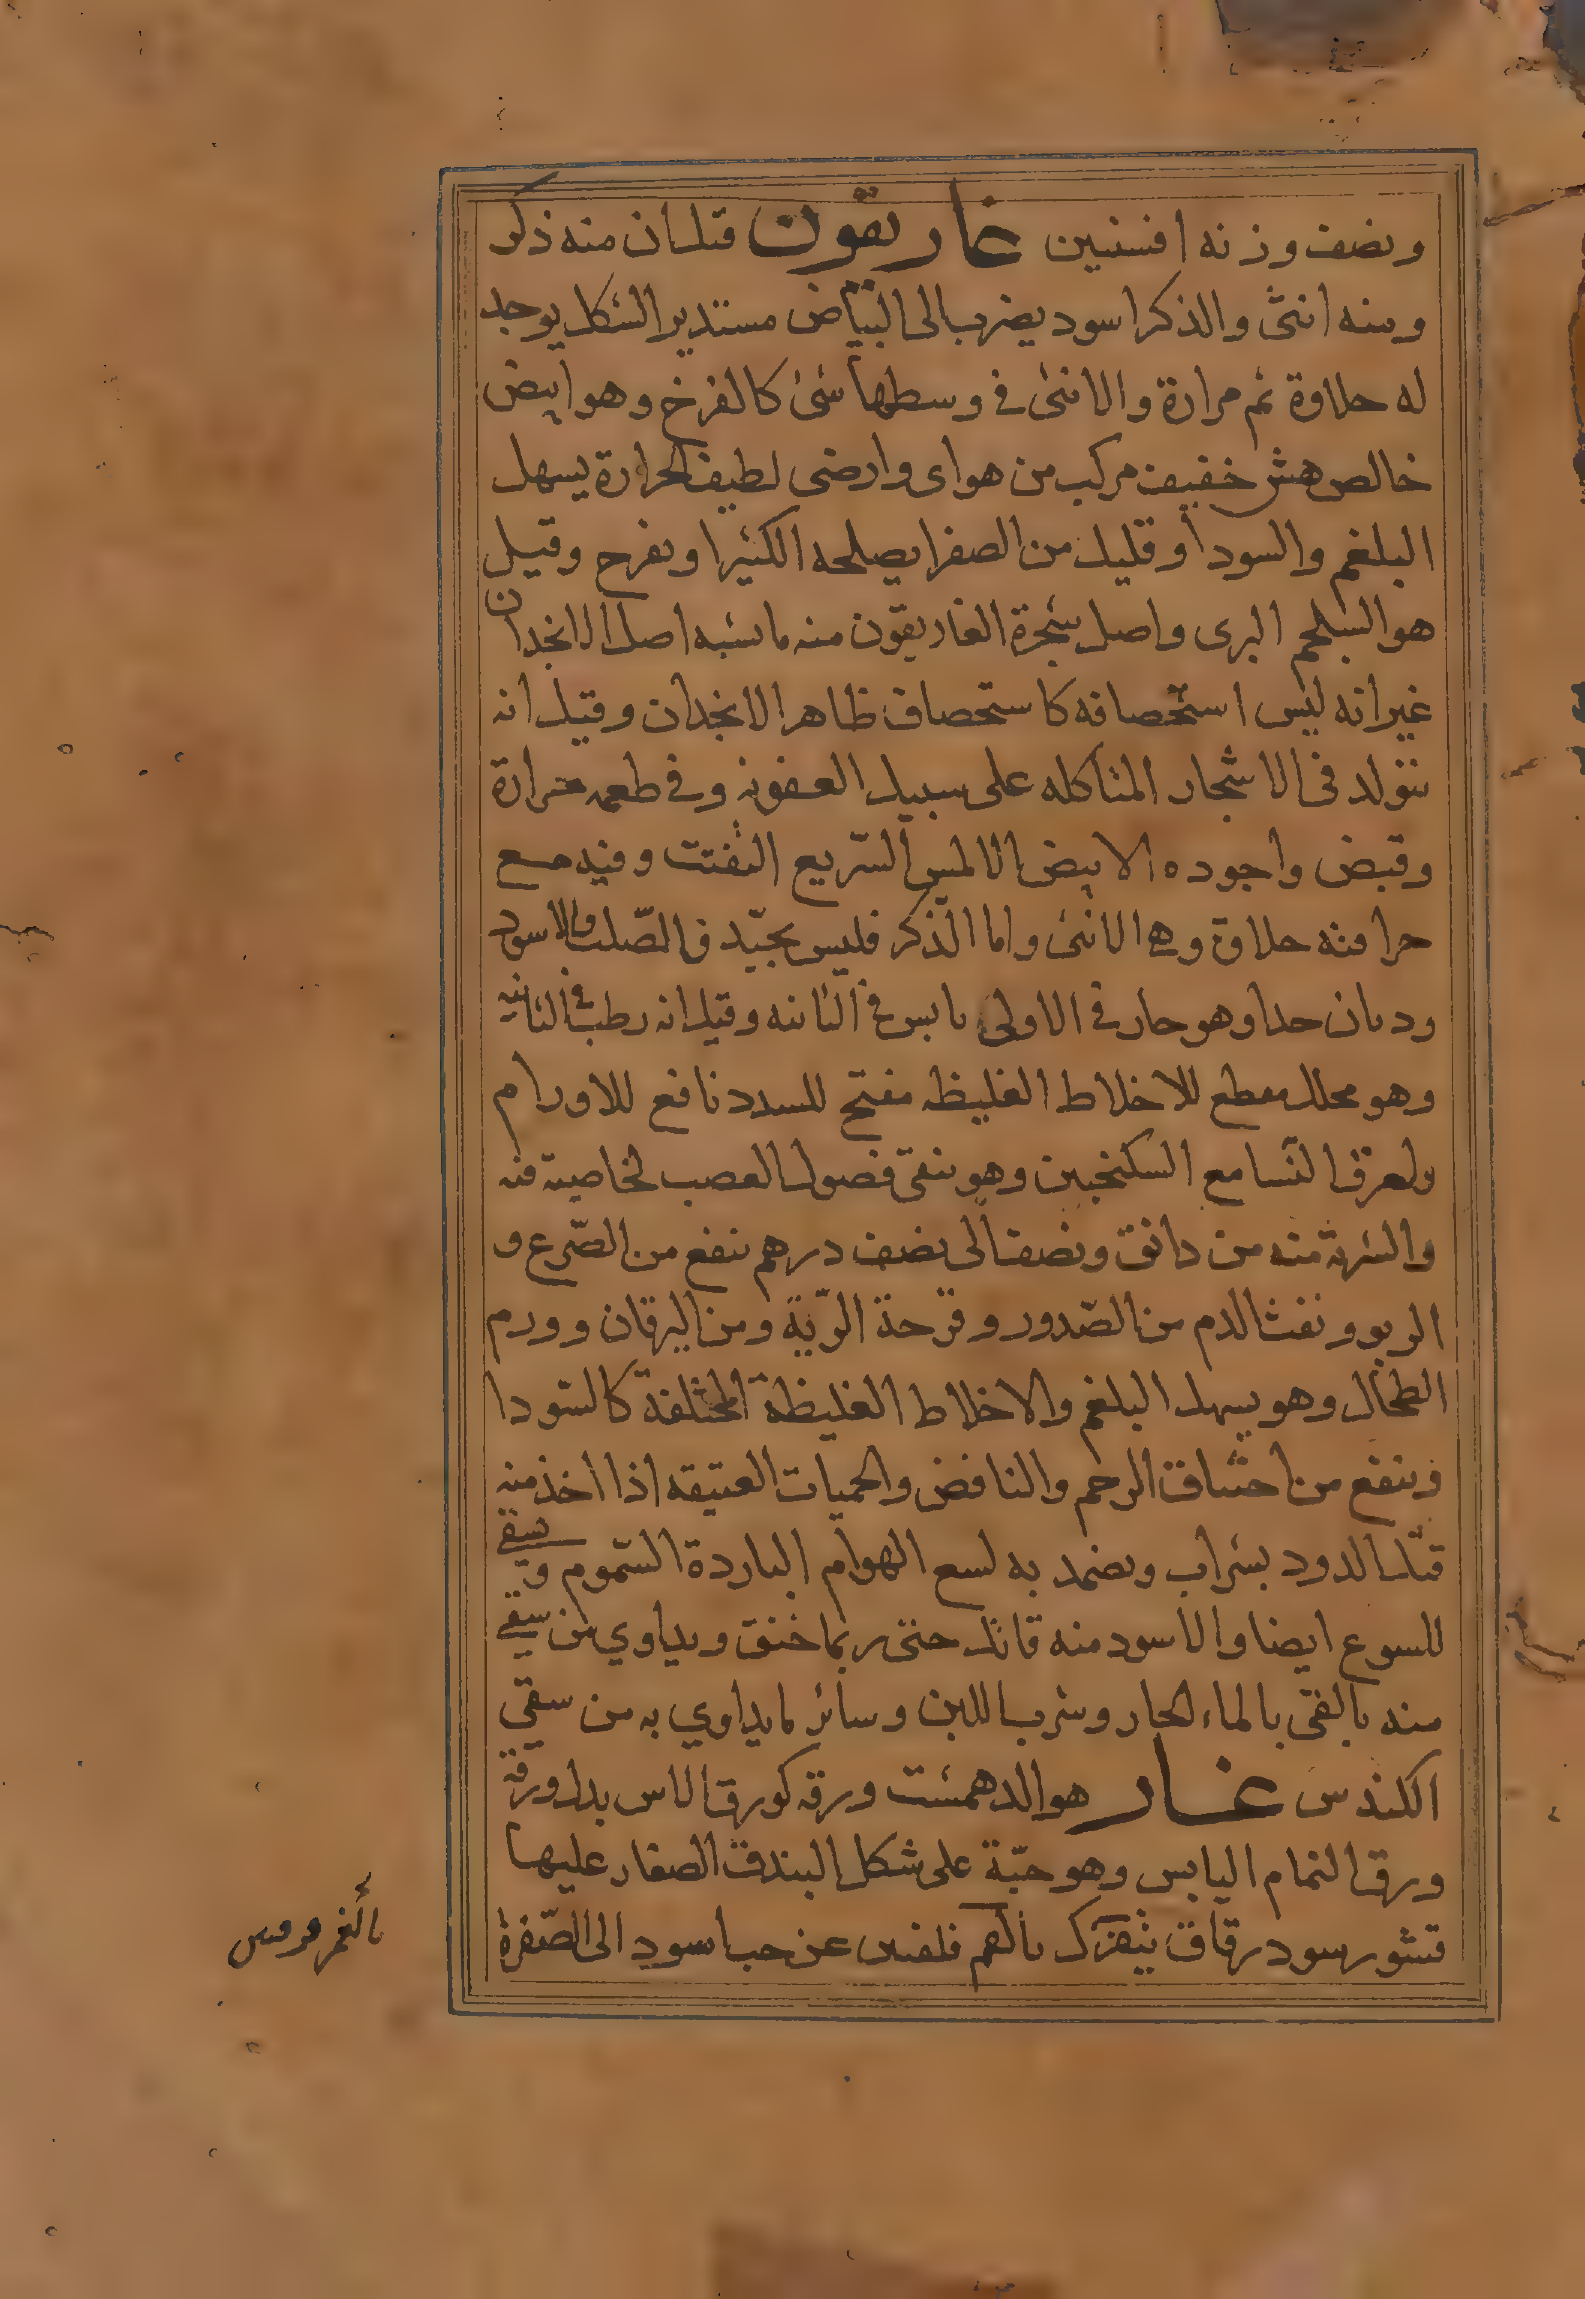 ونصف وزنه افسنتين غاريقون قيل ان منه ذكر
ومنه انثى والذكر اسود يضرب الى البياض مستدير الشكل يوجد
له حلاوة ثم مرارة والانثى في وسطها شئ كالفرخ وهو ابيض
خالص هش خفيف مركب من هواى وارضى لطيف الحرارة يسهل
البلغم والسودا وقليل من الصفرا يصلحه الكثيرا ويفرح وقيل
هو السلجم البرى واصل شجرة الغاريقون منه ما يشبه اصل الانجدان
غير انه ليس استحصافه كاستحصاف ظاهر الانجدان وقيل انه
يتولد في الاشجار المتاكله على سبيل العفونه وفي طعمه مرارة
وقبض واجوده الابيض الاملس السريع التفتت وفيه مع
حرافته حلاوة وهي الانثى واما الذكر فليس بجيّد فالصّلب والاسود
رديان جدا وهو حار في الاولى يابس في الثانيه وقيل انه رطب في الثانيه
وهو محلل مقطع للاخلاط الغليظه مفتح للسدد نافع للاورام
ولعرق النسا مع السكنجبين وهو ينقى فضول العصب لخاصية فيه
والشربة منه من دانق ونصف الى نصف درهم ينفع من الصّرع و
الربو ونفث الدم من الصّدور وقرحة الرّية ومن اليرقان وورم
الطحال وهو يسهل البلغم والاخلاط الغليظة المختلفة كالسّودا
وينفع من اختناق الرحم والنافض والحميات العتيقه اذا اخذ منه
قتل الدود بشراب ويضمد به لسع الهوام الباردة السّموم ويسقى
للسوع ايضا والاسود منه قاتل حتى ربما خنق ويداوي من سقي
منه بالقى بالماء الحار وشرب اللبن وسائر ما يداوي به من سقي
الكندس غار هو الدهمشت ورقه كورق الاس بدل ورقه
ورق النمام اليابس وهو حبّة على شكل البندق الصغار عليها
قشور سود رقاق ينفرك بالهم فلفس عن حب اسود الى الصّفرة